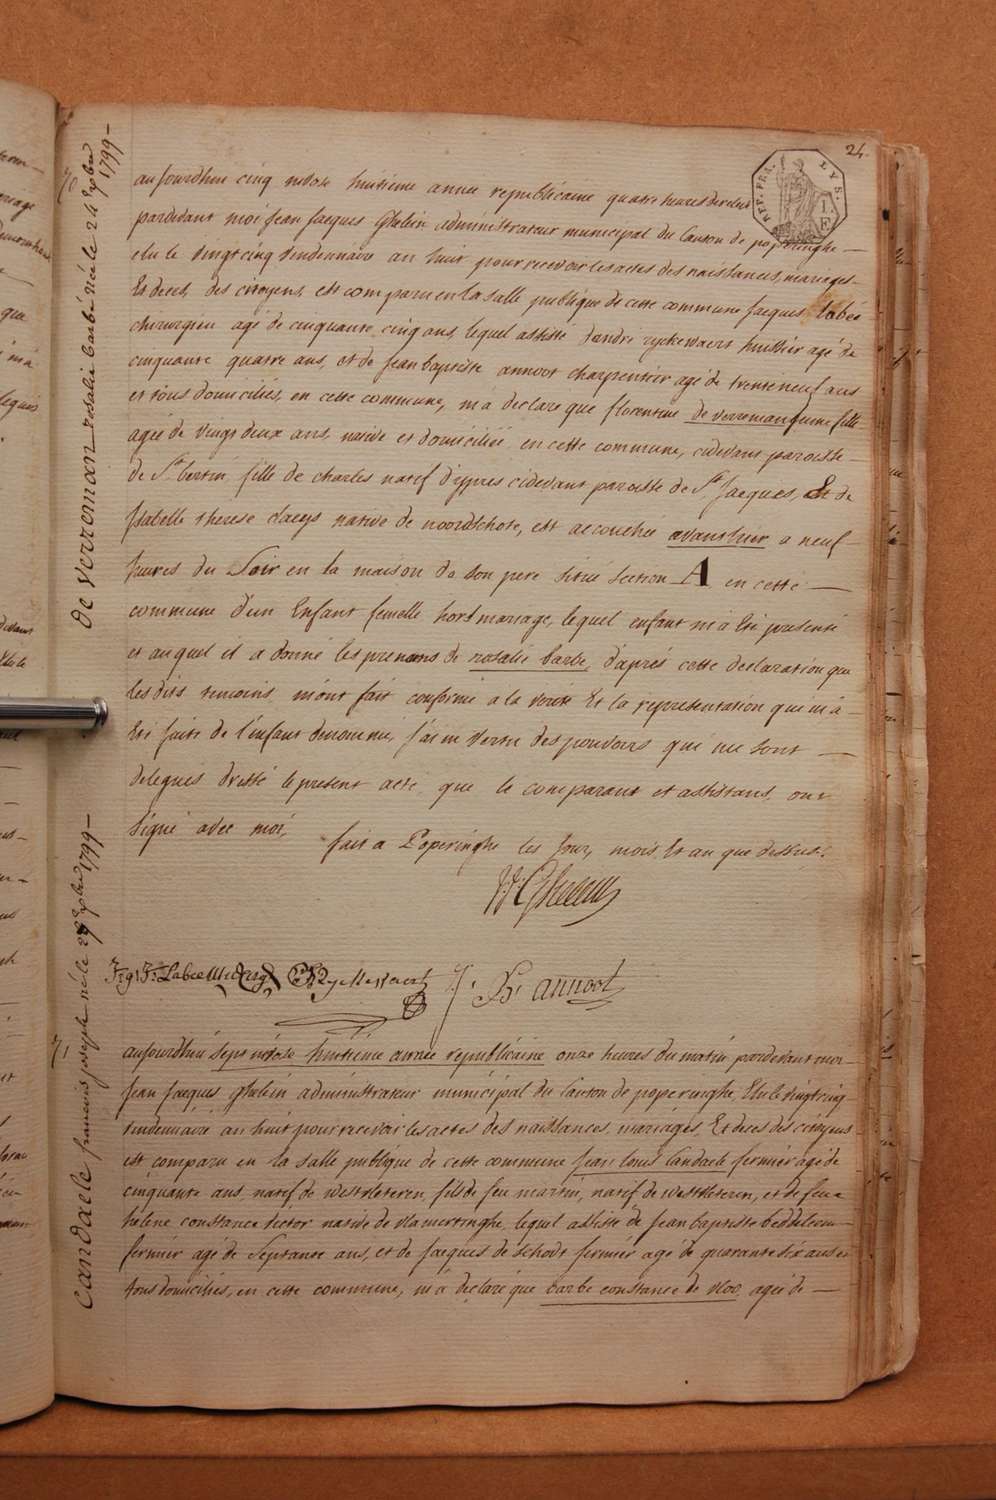 24.
REP. FRA.
LYS.
1.F
70
de verroman rosalie barbe née le 24 xbre 1799 —
aujourdhui cinq nivose huitieme année republicaine quatre heures de relevée
pardevant moi Jean Jacques Ghelein administrateur municipal du Canton de poperinghe —
elu le vingt cinq vindemiaire an huit pour recevoir les actes des naissances, mariages —
Et deces, des citoyens, est comparu en la salle publique de cette commune Jacques Labée
chirurgien agé de cinquante cinq ans, lequel assisté d'andré ryckewaert huissier agé de
cinquante quatre ans, et de Jean baptiste annoot charpentier agé de trente neuf ans
et tous domiciliés, en cette commune, m'a declaré que florentine de verreman jeune fille
agée de vingt deux ans, native et domiciliée en cette commune, cidevant paroisse —
de St. bertin fille de charles natif d'ypres cidevant paroisse de St. Jacques, Et de
Isabelle therese claeys native de noordschote, est accouchée avant hier a neuf —
heures du Soir en la maison de son pere situé Section A en cette —
commune d'un Enfant femelle hors mariage, lequel enfant m'a Eté presenté
et auquel il a donné les prenoms de rosalie barbe, d'après cette declaration que
les dits temoins m'ont fait conforme a la verité Et la representation que m'a —
Eté faite de l'enfant denommé, J'ai en vertu des pouvoirs qui me sont —
delegués dressé le present acte que le comparant et assistans, ont
Signé avec moi,
fait a Poperinghe les Jour, mois Et an que dessus.
JJ Ghelein
J. Labée
Ryckewaert
J. B. annoot
71
Candaele francois joseph né le 28 xbre 1799 —
aujourdhui sept nivose huitieme année republicaine onze heures du matin pardevant moi
Jean Jacques Ghelein administrateur municipal du Canton de poperinghe, Elu le vingt cinq
vindemiaire an huit pour recevoir les actes des naissances, mariages, Et deces des citoyens
est comparu en la salle publique de cette commune Jean louis Candaele fermier agé de
cinquante ans, natif de westvleteren, fils de feu martin, natif de westvleteren, et de feue
helene constance victor native de vlamertinghe, lequel assisté de Jean baptiste beddeleem
fermier agé de Septante ans, et de Jacques de schodt fermier agé de quarante six ans et
tous domiciliés, en cette commune, m'a declaré que barbe constance de vloo agée de —